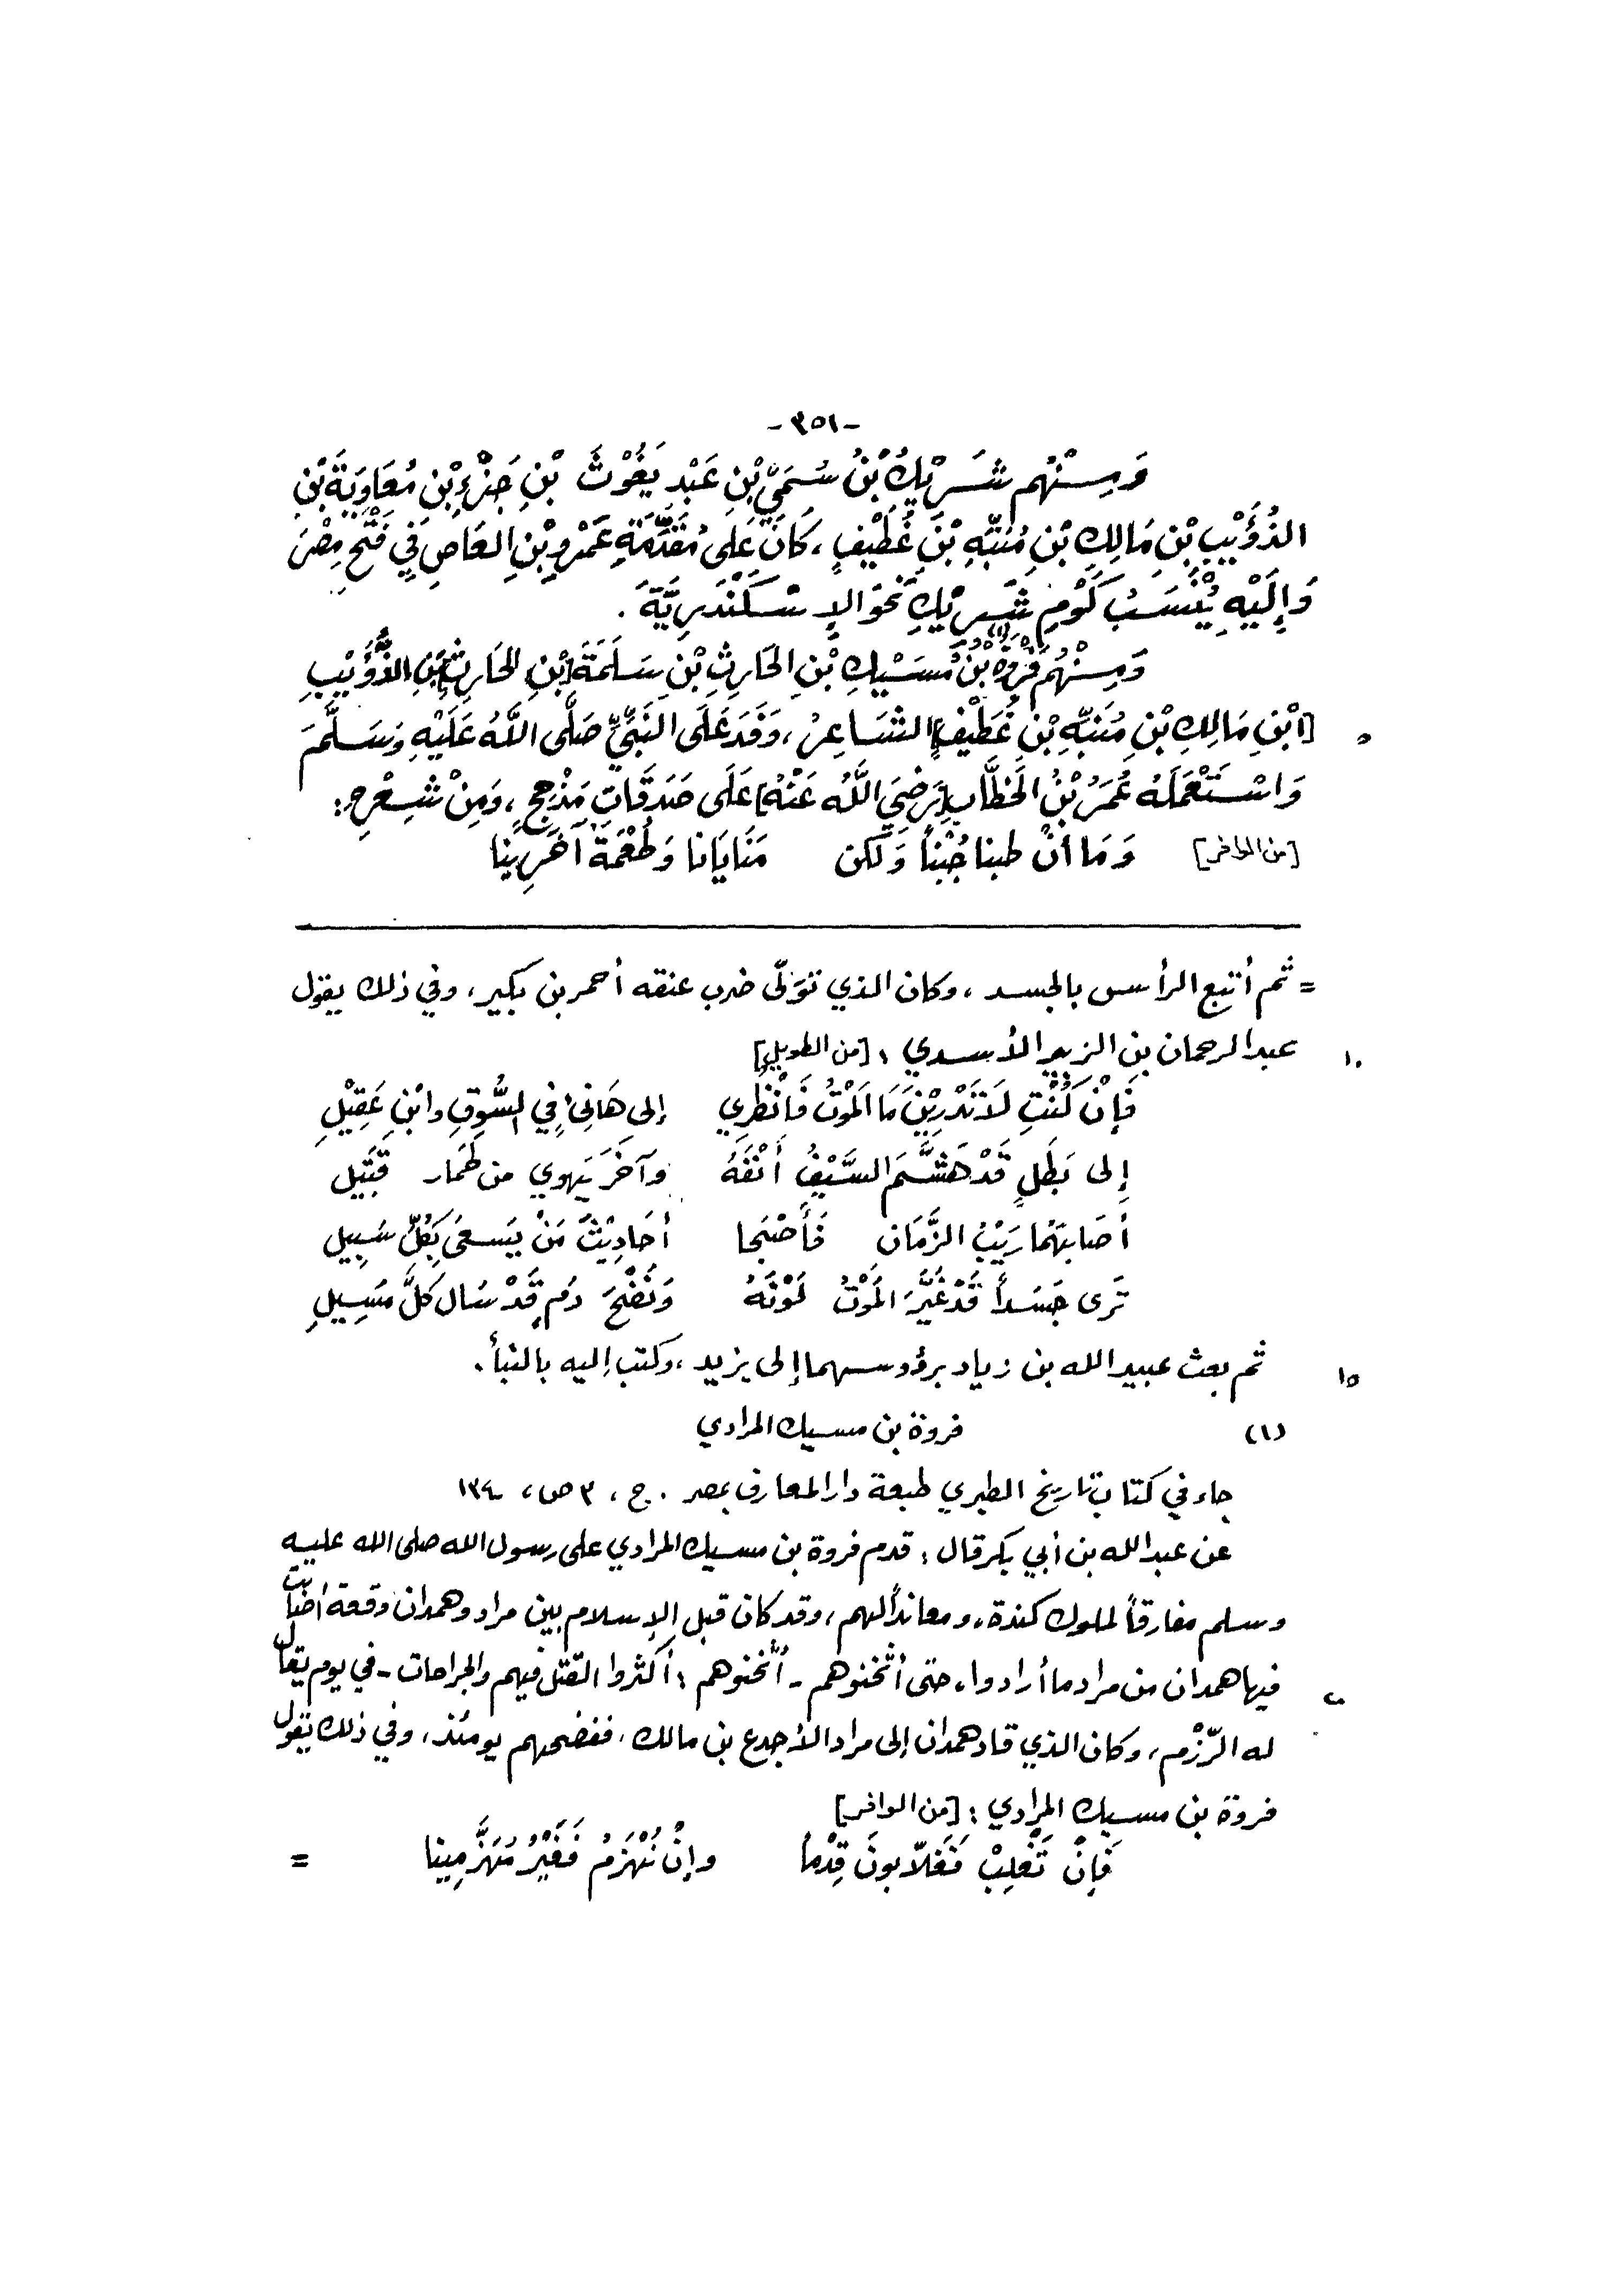 -٣٥١-
وَمِنْهُم شَرِيْكُ بْنُ سُمَيِّ بْنِ عَبْدِ يَغُوْثَ بْنِ جَزْءِ بْنِ مُعَاوِيَةَ بْنِ
الذُؤَيْبِ بْنِ مَالِكِ بْنِ مُنَبِّهِ بْنِ غُطَيْفٍ، كَانَ عَلَى مُقَدِّمَةِ عَمْرِو بْنِ العَاصِ فِي فَتْحِ مِصْرَ
وَإِلَيْهِ يُنْسَبُ كَوْمِ شَرِيْكِ نَحْوَ الإِسْكَنْدَرِيَّةَ.
وَمِنْهُم فَرْوَةُ (١) بْنُ مُسَيْكِ بْنِ الحَارِثِ بْنِ سَلَمَةَ [بْنِ الحَارِثِ] بْنِ الذُّؤَيْبِ
[ابْنِ مَالِكِ بْنِ مُنَبِّهِ بْنِ غُطَيْفٍ] الشَاعِرُ، وَفَدَ عَلَى النَبِيِّ صَلَّى اللَّهُ عَلَيْهِ وَسَلَّمَ ٥
وَاسْتَعْمَلَهُ عُمَرُ بْنُ الخَطَّابِ [رَضِيَ اللَّهُ عَنْهُ] عَلَى صَدَقَاتِ مَذْحِجٍ، وَمِنْ شِعْرِهِ:
[من الوافر] وَمَا أنْ طبنا جُبْناً وَلَكن مَنَايَانا وَطُعْمَة آخَرِينا
= ثم أتبع الرأس بالجسد، وكان الذي تَوَلّى ضرب عنقه أحمر بن بكير، وفي ذلك يقول
عبد الرحمان بن الزبير الأسدي: [من الطويل] ١٠
فَإِنْ كُنْتِ لَا تَدْرِيْنَ مَا المَوْتُ فَانْظُرِي إلى هَانِئٍ فِي السُّوقِ وابْنِ عَقِيْلِ
إِلى بَطَلٍ قَدْ هَشَّمَ السَّيْفُ أَنْفَهُ وآخَرَ يَهوِي من طَمَار قَتِيل
أصَابَهُمَا رَيْبُ الزَّمَانِ فَأَصْبَحا أحَادِيْثَ مَنْ يَسعَى بِكُلِّ سَبِيلِ
تَرى جَسَداً قَدْ غَيَّرَ المَوْتُ لَوْنَهُ وَنَضْحَ دَمٍ قَدْ سَال كلَّ مَسِيلِ
ثم بعث عبيد الله بن زياد برؤوسهما إلى يزيد، وكتب إليه بالنبأ. ١٥
(١) فروة بن مسيك المرادي
جاء في كتاب تاريخ الطبري طبعة دار المعارف بمصر. ج، ٣ ص، ١٣٤
عن عبد الله بن أبي بكر قال: قدم فروة بن مسيك المرادي على رسول الله صلى الله عليه
وسلم مفارقاً لملوك كندة، ومعانداً لهم، وقد كان قبل الإسلام بين مراد وهمدان وقعة أصابت
فيها همدان من مراد ما أرادوا، حتى أثخنوهم - أثخنوهم: أكثروا القتل فيهم والجراحات - في يوم يقال ٢٠
له الرّزْم، وكان الذي قاد همدان إلى مراد الأجدع بن مالك، ففضحهم يومئذ، وفي ذلك يقول
فروة بن مسيك المرادي: [من الوافر]
فَإِنْ نَغْلِبْ فَغَلّابونَ قِدْماً وإنْ نُهْزَمْ فَغَيْرُ مُهَزَّمِينا =